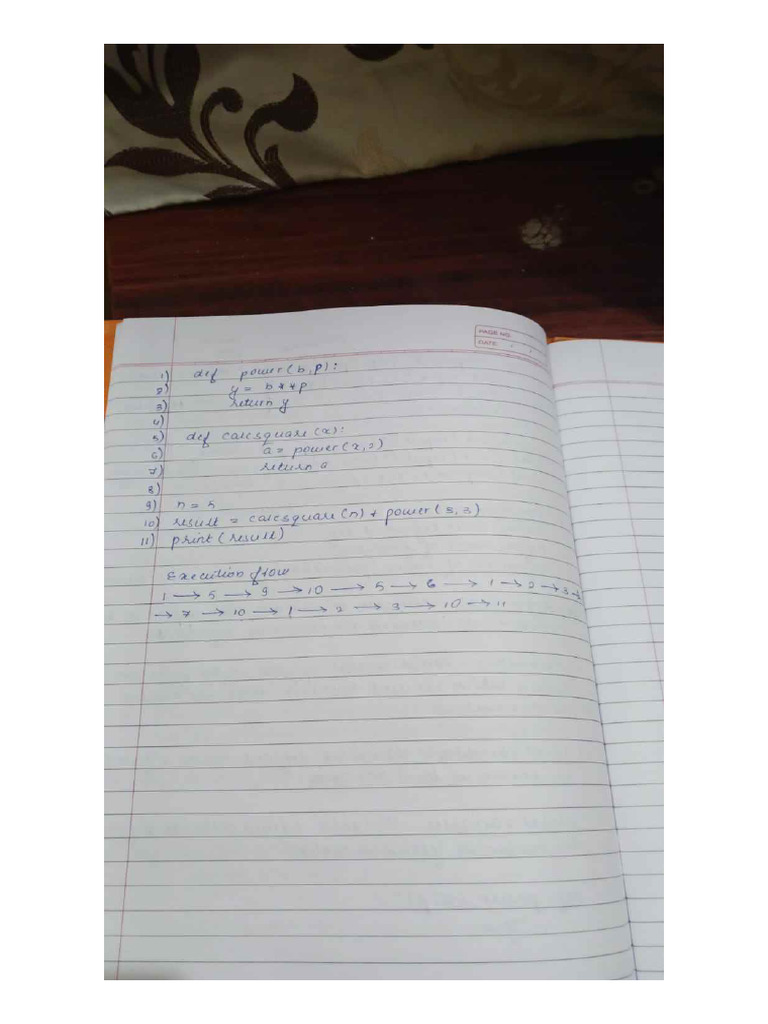 PAGE NO.
DATE: / /
1) def power(b,p):
2) y = b**p
3) return y
4)
5) def calcsquare(x):
6) a = power(x,2)
7) return a
8)
9) n = 5
10) result = calcsquare(n) + power(3,3)
11) print(result)
Execution flow
1 → 5 → 9 → 10 → 5 → 6 → 1 → 2 → 3 →
→ 7 → 10 → 1 → 2 → 3 → 10 → 11